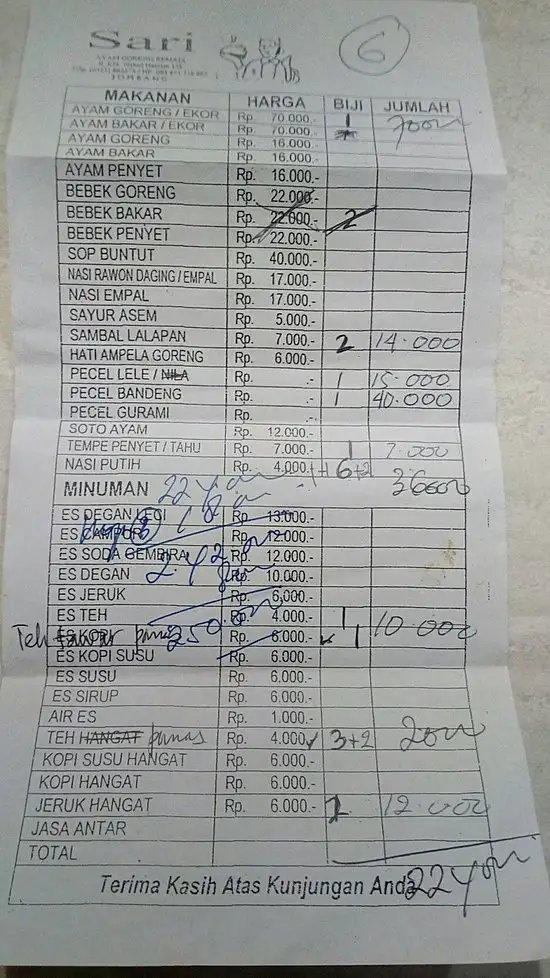 Sari
6
AYAM GORENG REMAJA
JOMBANG
MAKANAN HARGA BIJI JUMLAH
AYAM GORENG / EKOR Rp. 70.000.- 1
AYAM BAKAR / EKOR Rp. 70.000.-
AYAM GORENG Rp. 16.000.-
AYAM BAKAR Rp. 16.000.-
AYAM PENYET Rp. 16.000.-
BEBEK GORENG Rp. 22.000.-
BEBEK BAKAR Rp. 22.000.- 2
BEBEK PENYET Rp. 22.000.-
SOP BUNTUT Rp. 40.000.-
NASI RAWON DAGING / EMPAL Rp. 17.000.-
NASI EMPAL Rp. 17.000.-
SAYUR ASEM Rp. 5.000.-
SAMBAL LALAPAN Rp. 7.000.- 2 14.000
HATI AMPELA GORENG Rp. 6.000.-
PECEL LELE / NILA Rp. .- 1 15.000
PECEL BANDENG Rp. .- 1 40.000
PECEL GURAMI Rp. .-
SOTO AYAM Rp. 12.000.-
TEMPE PENYET / TAHU Rp. 7.000.- 1 7.000
NASI PUTIH Rp. 4.000.- 1+6+2 36000
MINUMAN
ES DEGAN LECI Rp. 13.000.-
ES CAMPUR Rp. 12.000.-
ES SODA GEMBIRA Rp. 12.000.-
ES DEGAN Rp. 10.000.-
ES JERUK Rp. 6.000.-
ES TEH Rp. 4.000.- 1 10 000
Teh tawar panas ES KOPI Rp. 6.000.- 1
ES KOPI SUSU Rp. 6.000.-
ES SUSU Rp. 6.000.-
ES SIRUP Rp. 6.000.-
AIR ES Rp. 1.000.-
TEH HANGAT panas Rp. 4.000 3+2
KOPI SUSU HANGAT Rp. 6.000.-
KOPI HANGAT Rp. 6.000.-
JERUK HANGAT Rp. 6.000.- 2 12.000
JASA ANTAR
TOTAL
Terima Kasih Atas Kunjungan Anda